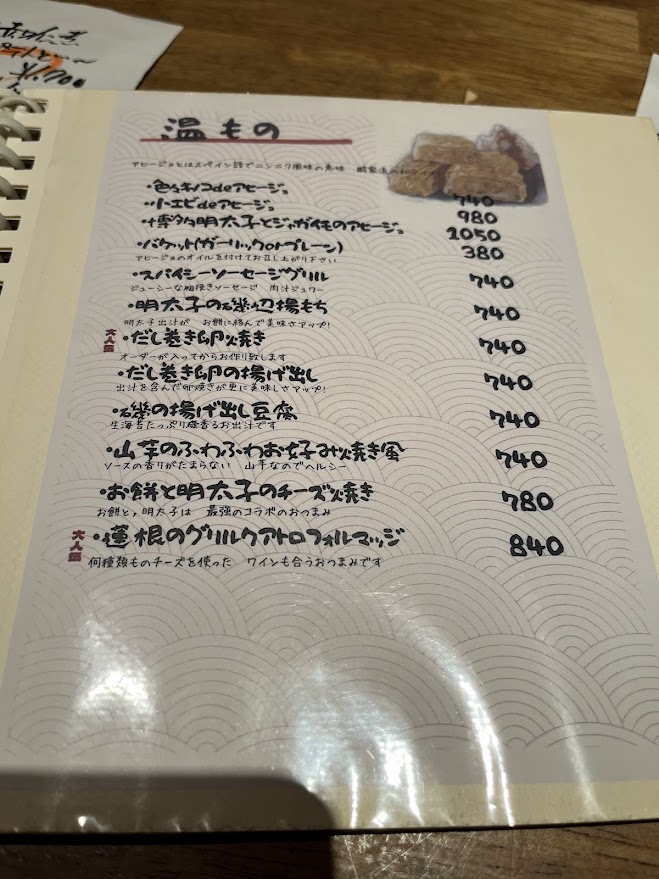 温もの
アヒージョとはスペイン語でニンニク風味の意味
・色々キノコdeアヒージョ 740
・小エビdeアヒージョ 980
・博多明太子とジャガイモのアヒージョ 1050
・バケット(ガーリックorプレーン) 380
アヒージョのオイルを付けてお召し上がり下さい
・スパイシーソーセージグリル 740
ジューシーな粗挽きソーセージ 肉汁ジュワー
・明太子の磯辺揚もち 740
明太子出汁が お餅に絡んで美味さアップ!
大人気 ・だし巻き卵焼き 740
オーダーが入ってからお作り致します
・だし巻き卵の揚げ出し 740
出汁を含んだ卵焼きが更に美味しさアップ!
・磯の揚げ出し豆腐 740
生海苔たっぷり磯香るお出汁です
・山芋のふわふわお好み焼き風 740
ソースの香りがたまらない 山芋なのでヘルシー
・お餅と明太子のチーズ焼き 780
お餅と,明太子は 最強のコラボのおつまみ
大人気 ・蓮根のグリルクアトロフォルマッジ 840
何種類ものチーズを使った ワインも合うおつまみです